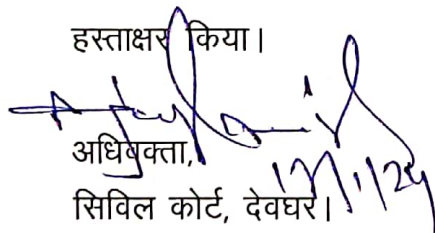 हस्ताक्षर किया।
अधिवक्ता,
सिविल कोर्ट, देवघर।